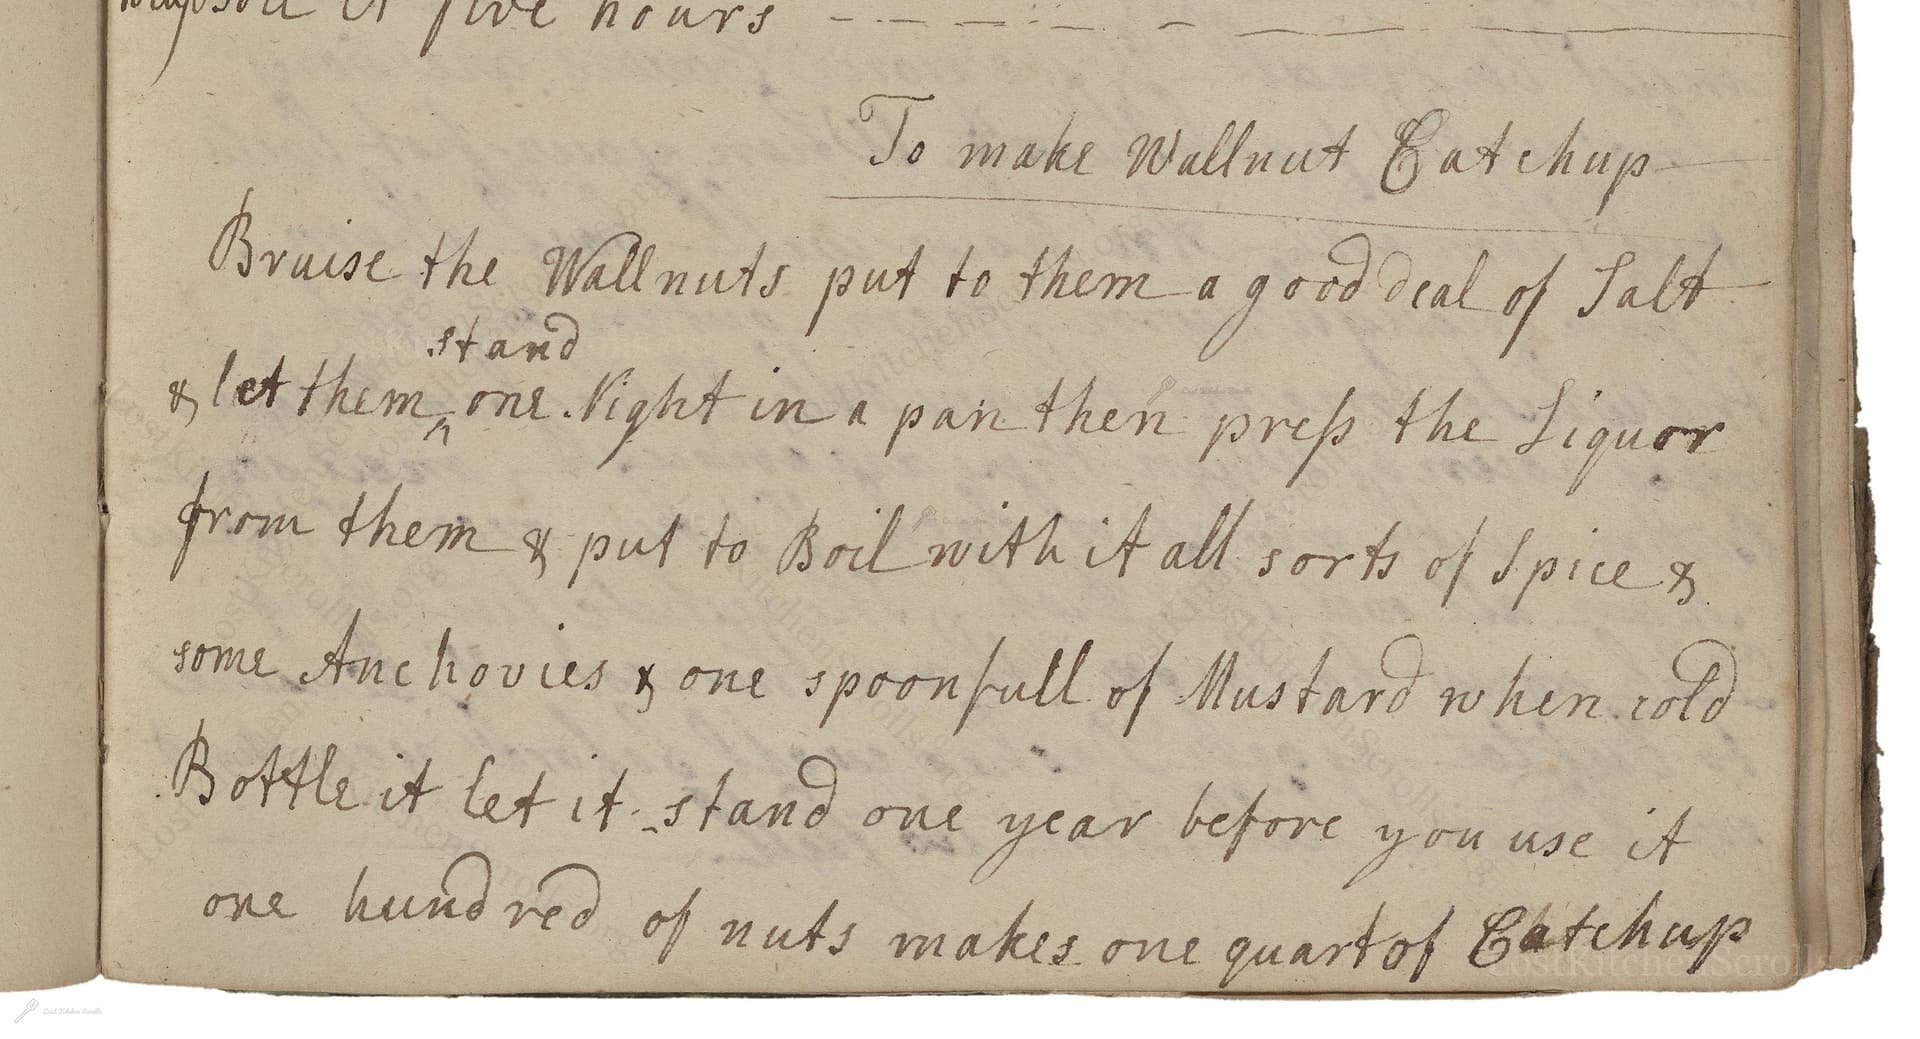 it five hours
To make Wallnut Catchup
Bruise the Wallnuts put to them a good deal of Salt
stand
& let them ^ one Night in a pan then preſs the Liquor
from them & put to Boil with it all sorts of Spice &
some Anchovies & one spoonfull of Mustard when cold
Bottle it let it stand one year before you use it
one hundred of nuts makes one quart of Catchup
LostKitchenScrolls
Lost Kitchen Scrolls